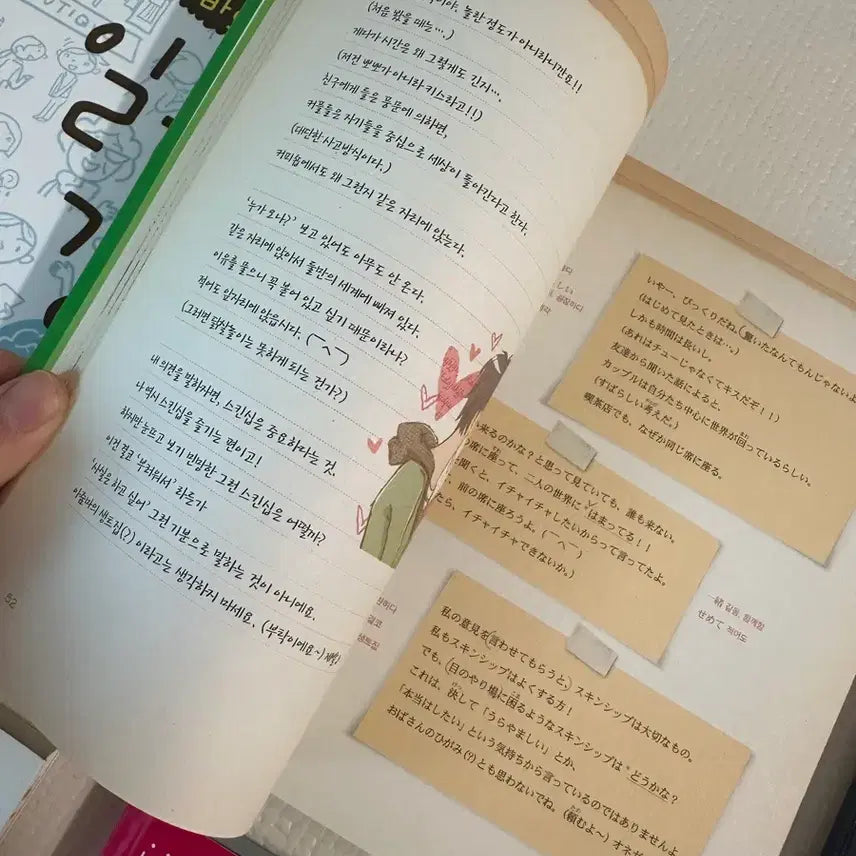 일
이야, 놀란 정도가 아니라니깐요!!
(처음 봤을 때는…,)
게다가 시간은 왜 그렇게도 긴지…,
(저건 뽀뽀가 아니라 키스라고!!)
친구에게 들은 풍문에 의하면,
커플들은 자기들을 중심으로 세상이 돌아간다고 한다.
(대단한 사고방식이다.)
커피숍에서도 왜 그런지 같은 자리에 앉는다.
'누가 오나?' 보고 있어도 아무도 안 온다.
같은 자리에 앉아서 둘만의 세계에 빠져 있다.
이유를 물으니 꼭 붙어 있고 싶기 때문이라나?
적어도 앞자리에 앉읍시다. (￣へ￣)
(그러면 닭살놀이는 못하게 되는 건가?)
내 의견을 말하자면, 스킨십을 중요하다는 것.
나 역시 스킨십을 즐기는 편이고!
하지만 눈뜨고 보기 민망한 그런 스킨십을 어떨까?
이건 결코 '부러워서' 라든가
'사실은 하고 싶어' 그런 기분으로 말하는 것이 아니에요.
아줌마의 생트집(?) 이라고는 생각하지 마세요. (부탁이에요~)
52
いやー、びっくりだね(驚いたなんてもんじゃないよ
(はじめて見たときは…,)
しかも時間は長いし。
(あれはチューじゃなくてキスだぞ！！)
友達から聞いた話によると、
カップルは自分たち中心に世界が回っているらしい。
(すばらしい考えだ。)
喫茶店でも、なぜか同じ席に座る。
来るのかな？と思って見ていても、誰も来ない。
席に座って、二人の世界にはまってる！！
聞くと、イチャイチャしたいからって言ってたよ。
前の席に座ろうよ。(￣へ￣)
たら、イチャイチャできないか。)
一緒 같음, 함께함
せめて 적어도
결코
생트집
私の意見を(言わせてもらうと、)スキンシップは大切なもの。
私もスキンシップはよくする方！
でも、(目のやり場に困るようなスキンシップは どうかな？
これは、決して「うらやましい」とか、
「本当はしたい」という気持ちから言っているのではありませんよ
おばさんのひがみ(?)とも思わないでね。(頼むよ〜)